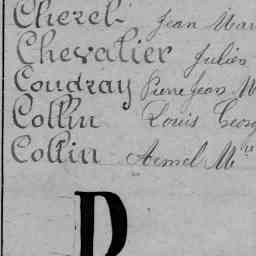 Cherel Jean Mar
Chevalier Julien
Coudray Pierre Jean M
Collin Louis Georg
Collin Armel Mie
D